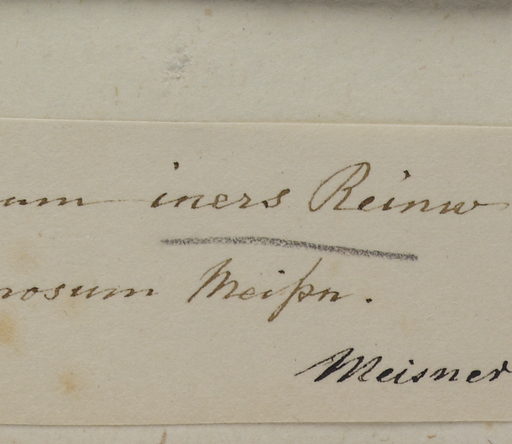 um iners Reinw
nosum Meißn.
Meisner